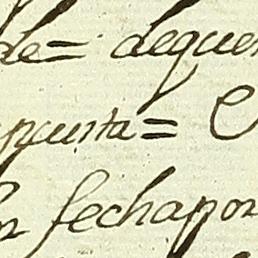 de= dequen
puesta= C
fecha por